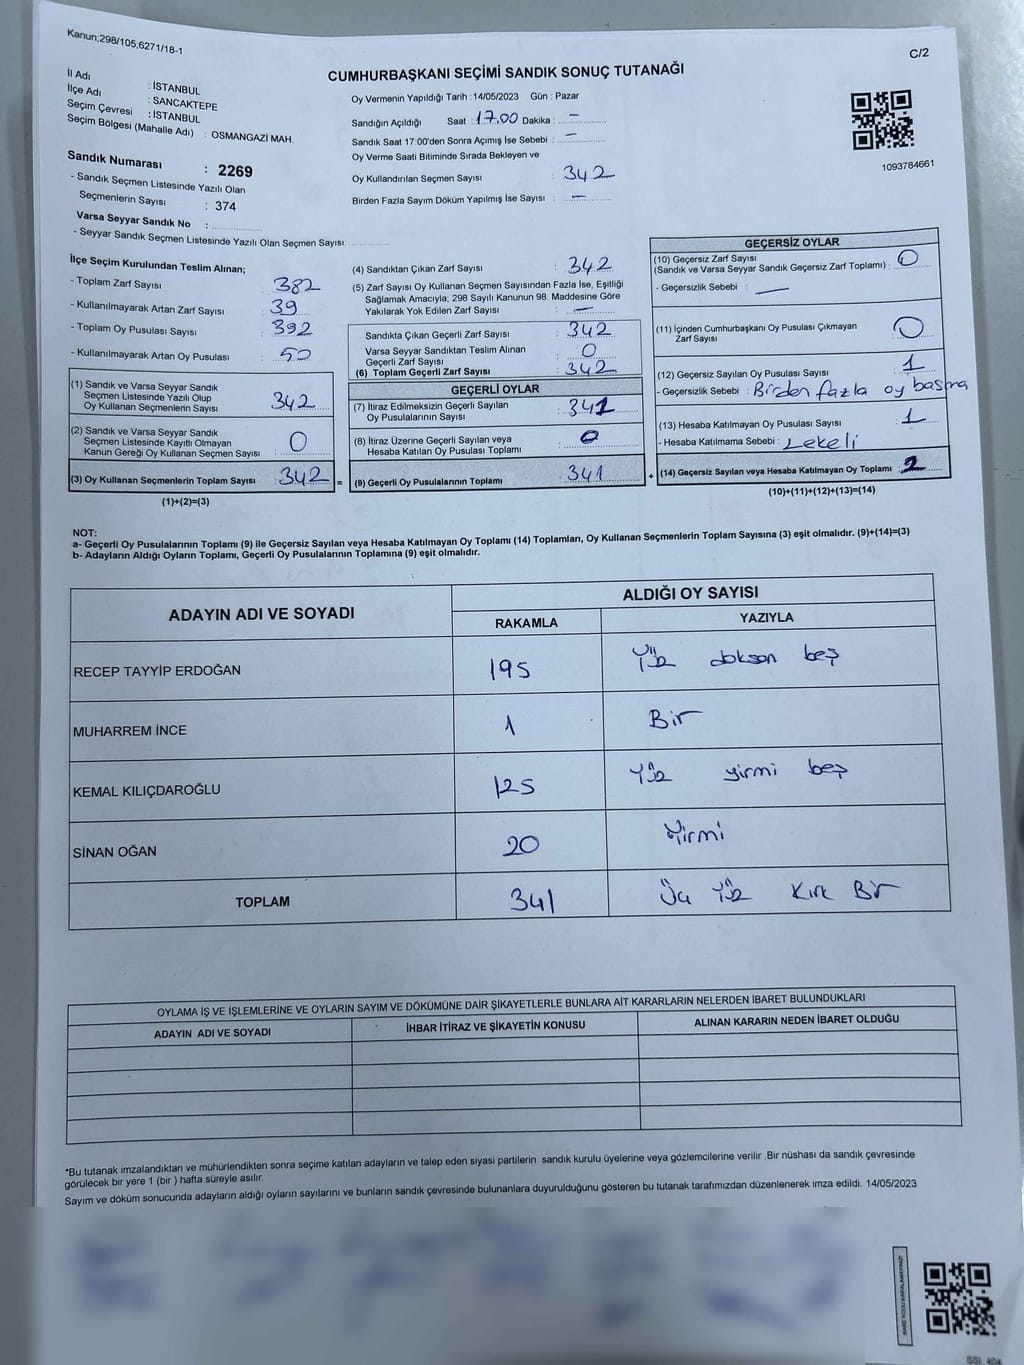 Kanun;298/105;6271/18-1
C/2
CUMHURBAŞKANI SEÇİMİ SANDIK SONUÇ TUTANAĞI
İl Adı : İSTANBUL
İlçe Adı : SANCAKTEPE
Seçim Çevresi : İSTANBUL
Seçim Bölgesi (Mahalle Adı) : OSMANGAZİ MAH.
Sandık Numarası : 2269
- Sandık Seçmen Listesinde Yazılı Olan
Seçmenlerin Sayısı : 374
Varsa Seyyar Sandık No :
- Seyyar Sandık Seçmen Listesinde Yazılı Olan Seçmen Sayısı:
Oy Vermenin Yapıldığı Tarih : 14/05/2023 Gün : Pazar
Sandığın Açıldığı Saat : 17.00 Dakika : -
Sandık Saat 17:00'den Sonra Açımış İse Sebebi : -
Oy Verme Saati Bitiminde Sırada Bekleyen ve
Oy Kullandırılan Seçmen Sayısı : 342
Birden Fazla Sayım Döküm Yapılmış İse Sayısı : -
1093784661
İlçe Seçim Kurulundan Teslim Alınan;
- Toplam Zarf Sayısı : 382
- Kullanılmayarak Artan Zarf Sayısı : 39
- Toplam Oy Pusulası Sayısı : 392
- Kullanılmayarak Artan Oy Pusulası : 50
(1) Sandık ve Varsa Seyyar Sandık
Seçmen Listesinde Yazılı Olup
Oy Kullanan Seçmenlerin Sayısı : 342
(2) Sandık ve Varsa Seyyar Sandık
Seçmen Listesinde Kayıtlı Olmayan
Kanun Gereği Oy Kullanan Seçmen Sayısı : 0
(3) Oy Kullanan Seçmenlerin Toplam Sayısı : 342 =
(1)+(2)=(3)
(4) Sandıktan Çıkan Zarf Sayısı : 342
(5) Zarf Sayısı Oy Kullanan Seçmen Sayısından Fazla İse, Eşitliği
Sağlamak Amacıyla, 298 Sayılı Kanunun 98. Maddesine Göre
Yakılarak Yok Edilen Zarf Sayısı : -
Sandıkta Çıkan Geçerli Zarf Sayısı : 342
Varsa Seyyar Sandıktan Teslim Alınan
Geçerli Zarf Sayısı : 0
(6) Toplam Geçerli Zarf Sayısı : 342
GEÇERLİ OYLAR
(7) İtiraz Edilmeksizin Geçerli Sayılan
Oy Pusulalarının Sayısı : 341
(8) İtiraz Üzerine Geçerli Sayılan veya
Hesaba Katılan Oy Pusulası Toplamı : 0
(9) Geçerli Oy Pusulalarının Toplamı : 341 +
GEÇERSİZ OYLAR
(10) Geçersiz Zarf Sayısı
(Sandık ve Varsa Seyyar Sandık Geçersiz Zarf Toplamı) : 0
- Geçersizlik Sebebi : -
(11) İçinden Cumhurbaşkanı Oy Pusulası Çıkmayan
Zarf Sayısı : 0
(12) Geçersiz Sayılan Oy Pusulası Sayısı : 1
- Geçersizlik Sebebi : Birden fazla oy basma
(13) Hesaba Katılmayan Oy Pusulası Sayısı : 1
- Hesaba Katılmama Sebebi : Lekeli
(14) Geçersiz Sayılan veya Hesaba Katılmayan Oy Toplamı : 2
(10)+(11)+(12)+(13)=(14)
NOT:
a- Geçerli Oy Pusulalarının Toplamı (9) ile Geçersiz Sayılan veya Hesaba Katılmayan Oy Toplamı (14) Toplamları, Oy Kullanan Seçmenlerin Toplam Sayısına (3) eşit olmalıdır. (9)+(14)=(3)
b- Adayların Aldığı Oyların Toplamı, Geçerli Oy Pusulalarının Toplamına (9) eşit olmalıdır.
ADAYIN ADI VE SOYADI
ALDIĞI OY SAYISI
RAKAMLA YAZIYLA
RECEP TAYYİP ERDOĞAN 195 Yüz doksan beş
MUHARREM İNCE 1 Bir
KEMAL KILIÇDAROĞLU 125 Yüz yirmi beş
SİNAN OĞAN 20 Yirmi
TOPLAM 341 Üç Yüz Kırk Bir
OYLAMA İŞ VE İŞLEMLERİNE VE OYLARIN SAYIM VE DÖKÜMÜNE DAİR ŞİKAYETLERLE BUNLARA AİT KARARLARIN NELERDEN İBARET BULUNDUKLARI
ADAYIN ADI VE SOYADI İHBAR İTİRAZ VE ŞİKAYETİN KONUSU ALINAN KARARIN NEDEN İBARET OLDUĞU
*Bu tutanak imzalandıktan ve mühürlendikten sonra seçime katılan adayların ve talep eden siyasi partilerin sandık kurulu üyelerine veya gözlemcilerine verilir .Bir nüshası da sandık çevresinde
görülecek bir yere 1 (bir ) hafta süreyle asılır.
Sayım ve döküm sonucunda adayların aldığı oyların sayılarını ve bunların sandık çevresinde bulunanlara duyurulduğunu gösteren bu tutanak tarafımızdan düzenlenerek imza edildi. 14/05/2023
KARE KODU KARALAMAYINIZ!